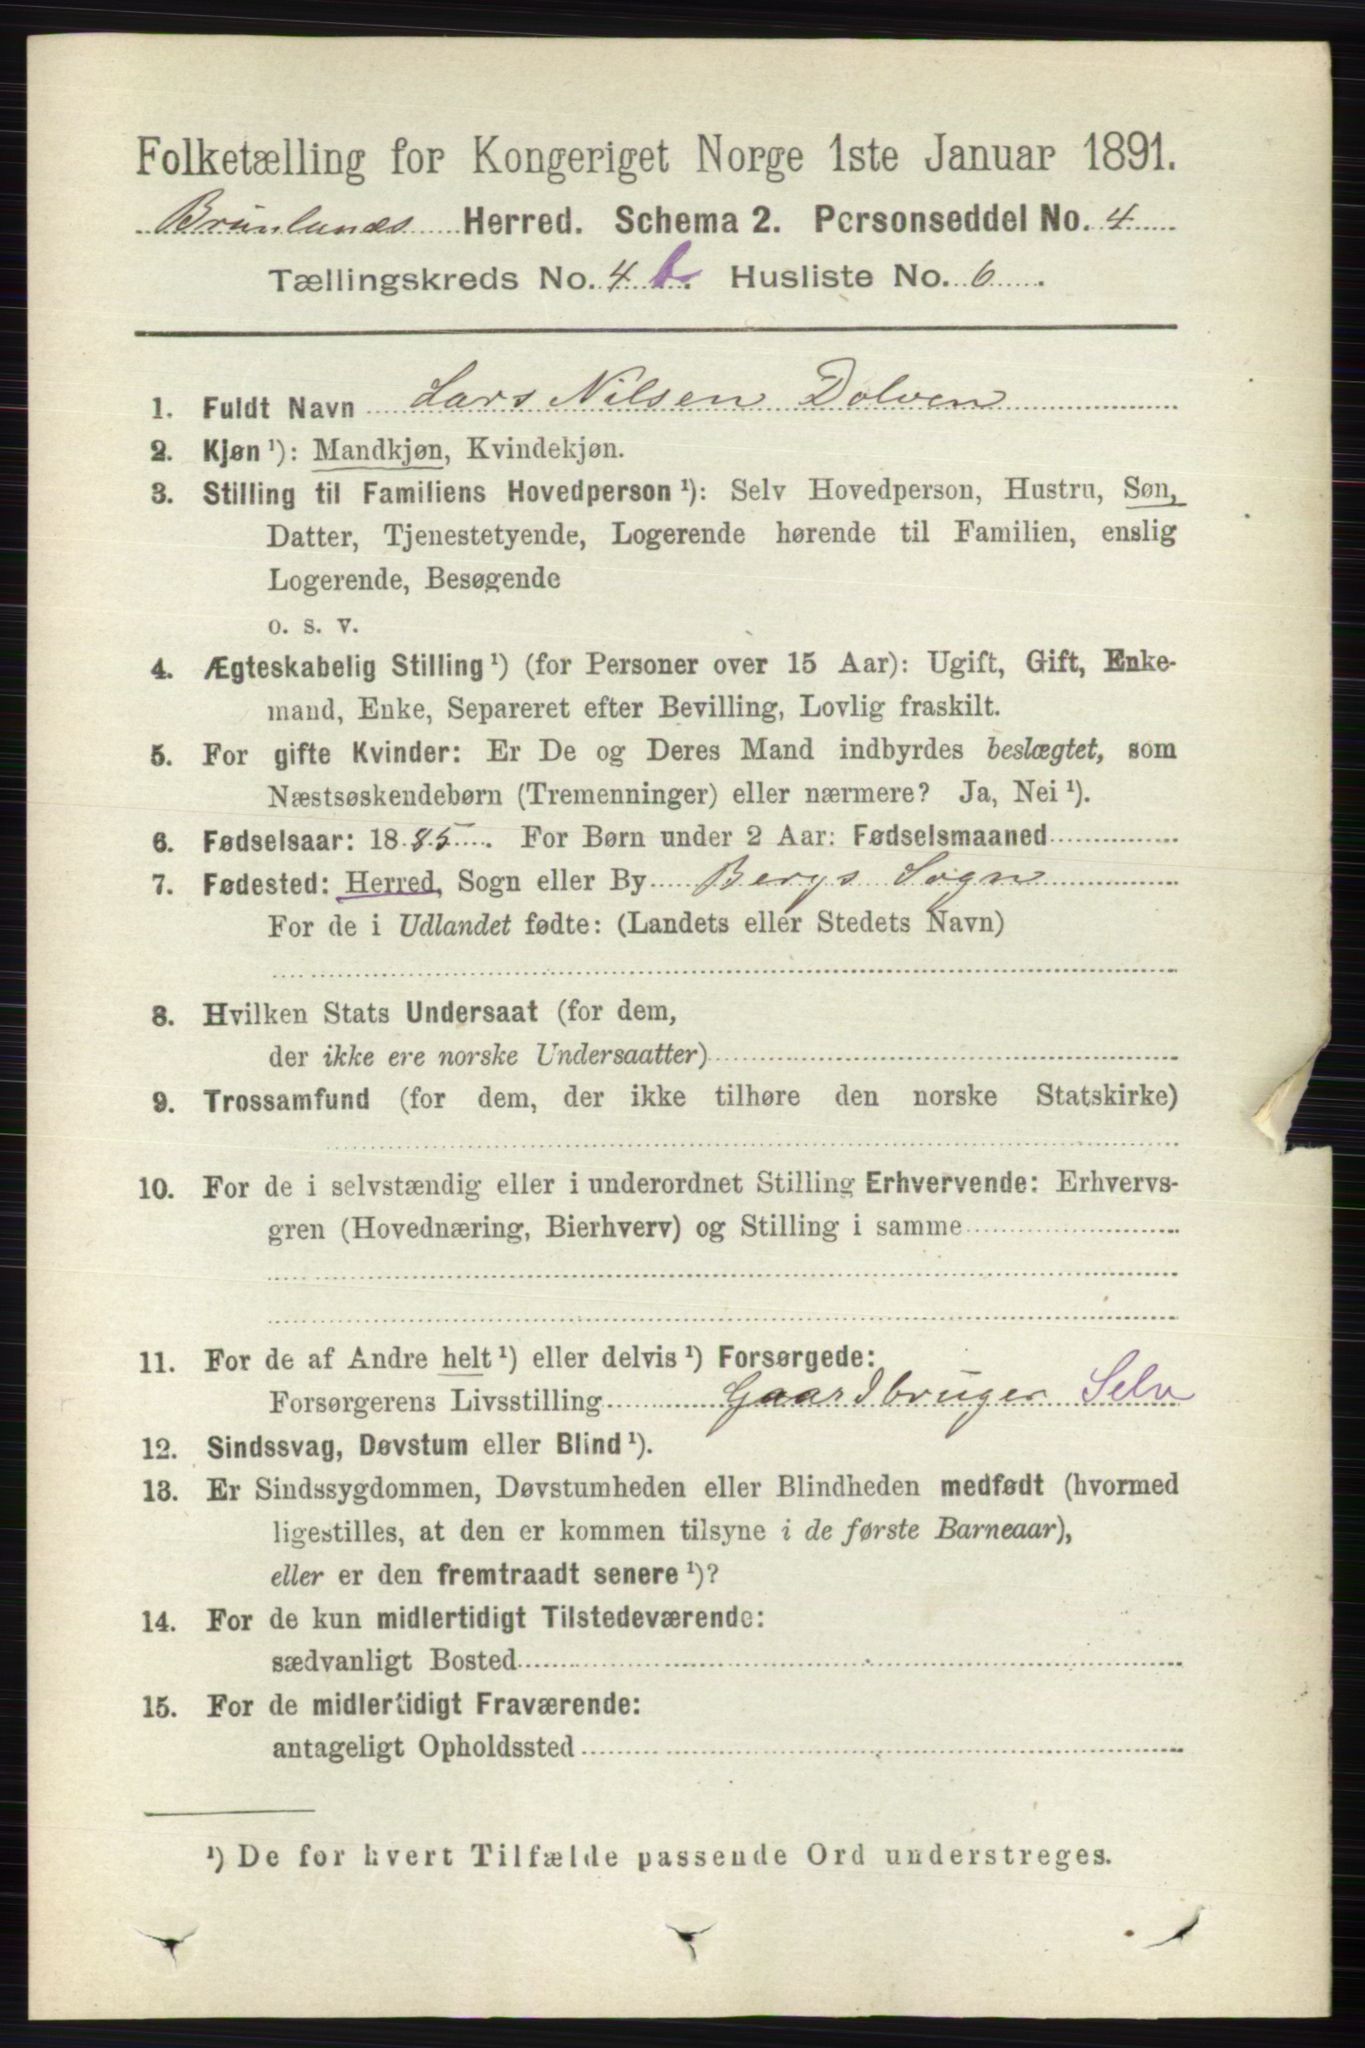 Folketælling for Kongeriget Norge 1ste Januar 1891.
Brunlanes Herred. Schema 2. Personseddel No. 4
Tællingskreds No. 4 b. Husliste No. 6.
1. Fuldt Navn Lars Nilsen Dolven
2. Kjøn ¹): Mandkjøn, Kvindekjøn.
3. Stilling til Familiens Hovedperson ¹): Selv Hovedperson, Hustru, Søn,
Datter, Tjenestetyende, Logerende hørende til Familien, enslig
Logerende, Besøgende
o. s. v.
4. Ægteskabelig Stilling ¹) (for Personer over 15 Aar): Ugift, Gift, Enke-
mand, Enke, Separeret efter Bevilling, Lovlig fraskilt.
5. For gifte Kvinder: Er De og Deres Mand indbyrdes beslægtet, som
Næstsøskendebørn (Tremenninger) eller nærmere? Ja, Nei ¹).
6. Fødselsaar: 1885. For Børn under 2 Aar: Fødselsmaaned
7. Fødested: Herred, Sogn eller By Bergs Sogn
For de i Udlandet fødte: (Landets eller Stedets Navn)
8. Hvilken Stats Undersaat (for dem,
der ikke ere norske Undersaatter)
9. Trossamfund (for dem, der ikke tilhøre den norske Statskirke)
10. For de i selvstændig eller i underordnet Stilling Erhvervende: Erhvervs-
gren (Hovednæring, Bierhverv) og Stilling i samme
11. For de af Andre helt ¹) eller delvis ¹) Forsørgede:
Forsørgerens Livsstilling Gaardbruger Selv
12. Sindssvag, Døvstum eller Blind ¹).
13. Er Sindssygdommen, Døvstumheden eller Blindheden medfødt (hvormed
ligestilles, at den er kommen tilsyne i de første Barneaar),
eller er den fremtraadt senere ¹)?
14. For de kun midlertidigt Tilstedeværende:
sædvanligt Bosted
15. For de midlertidigt Fraværende:
antageligt Opholdssted
¹) De for hvert Tilfælde passende Ord understreges.